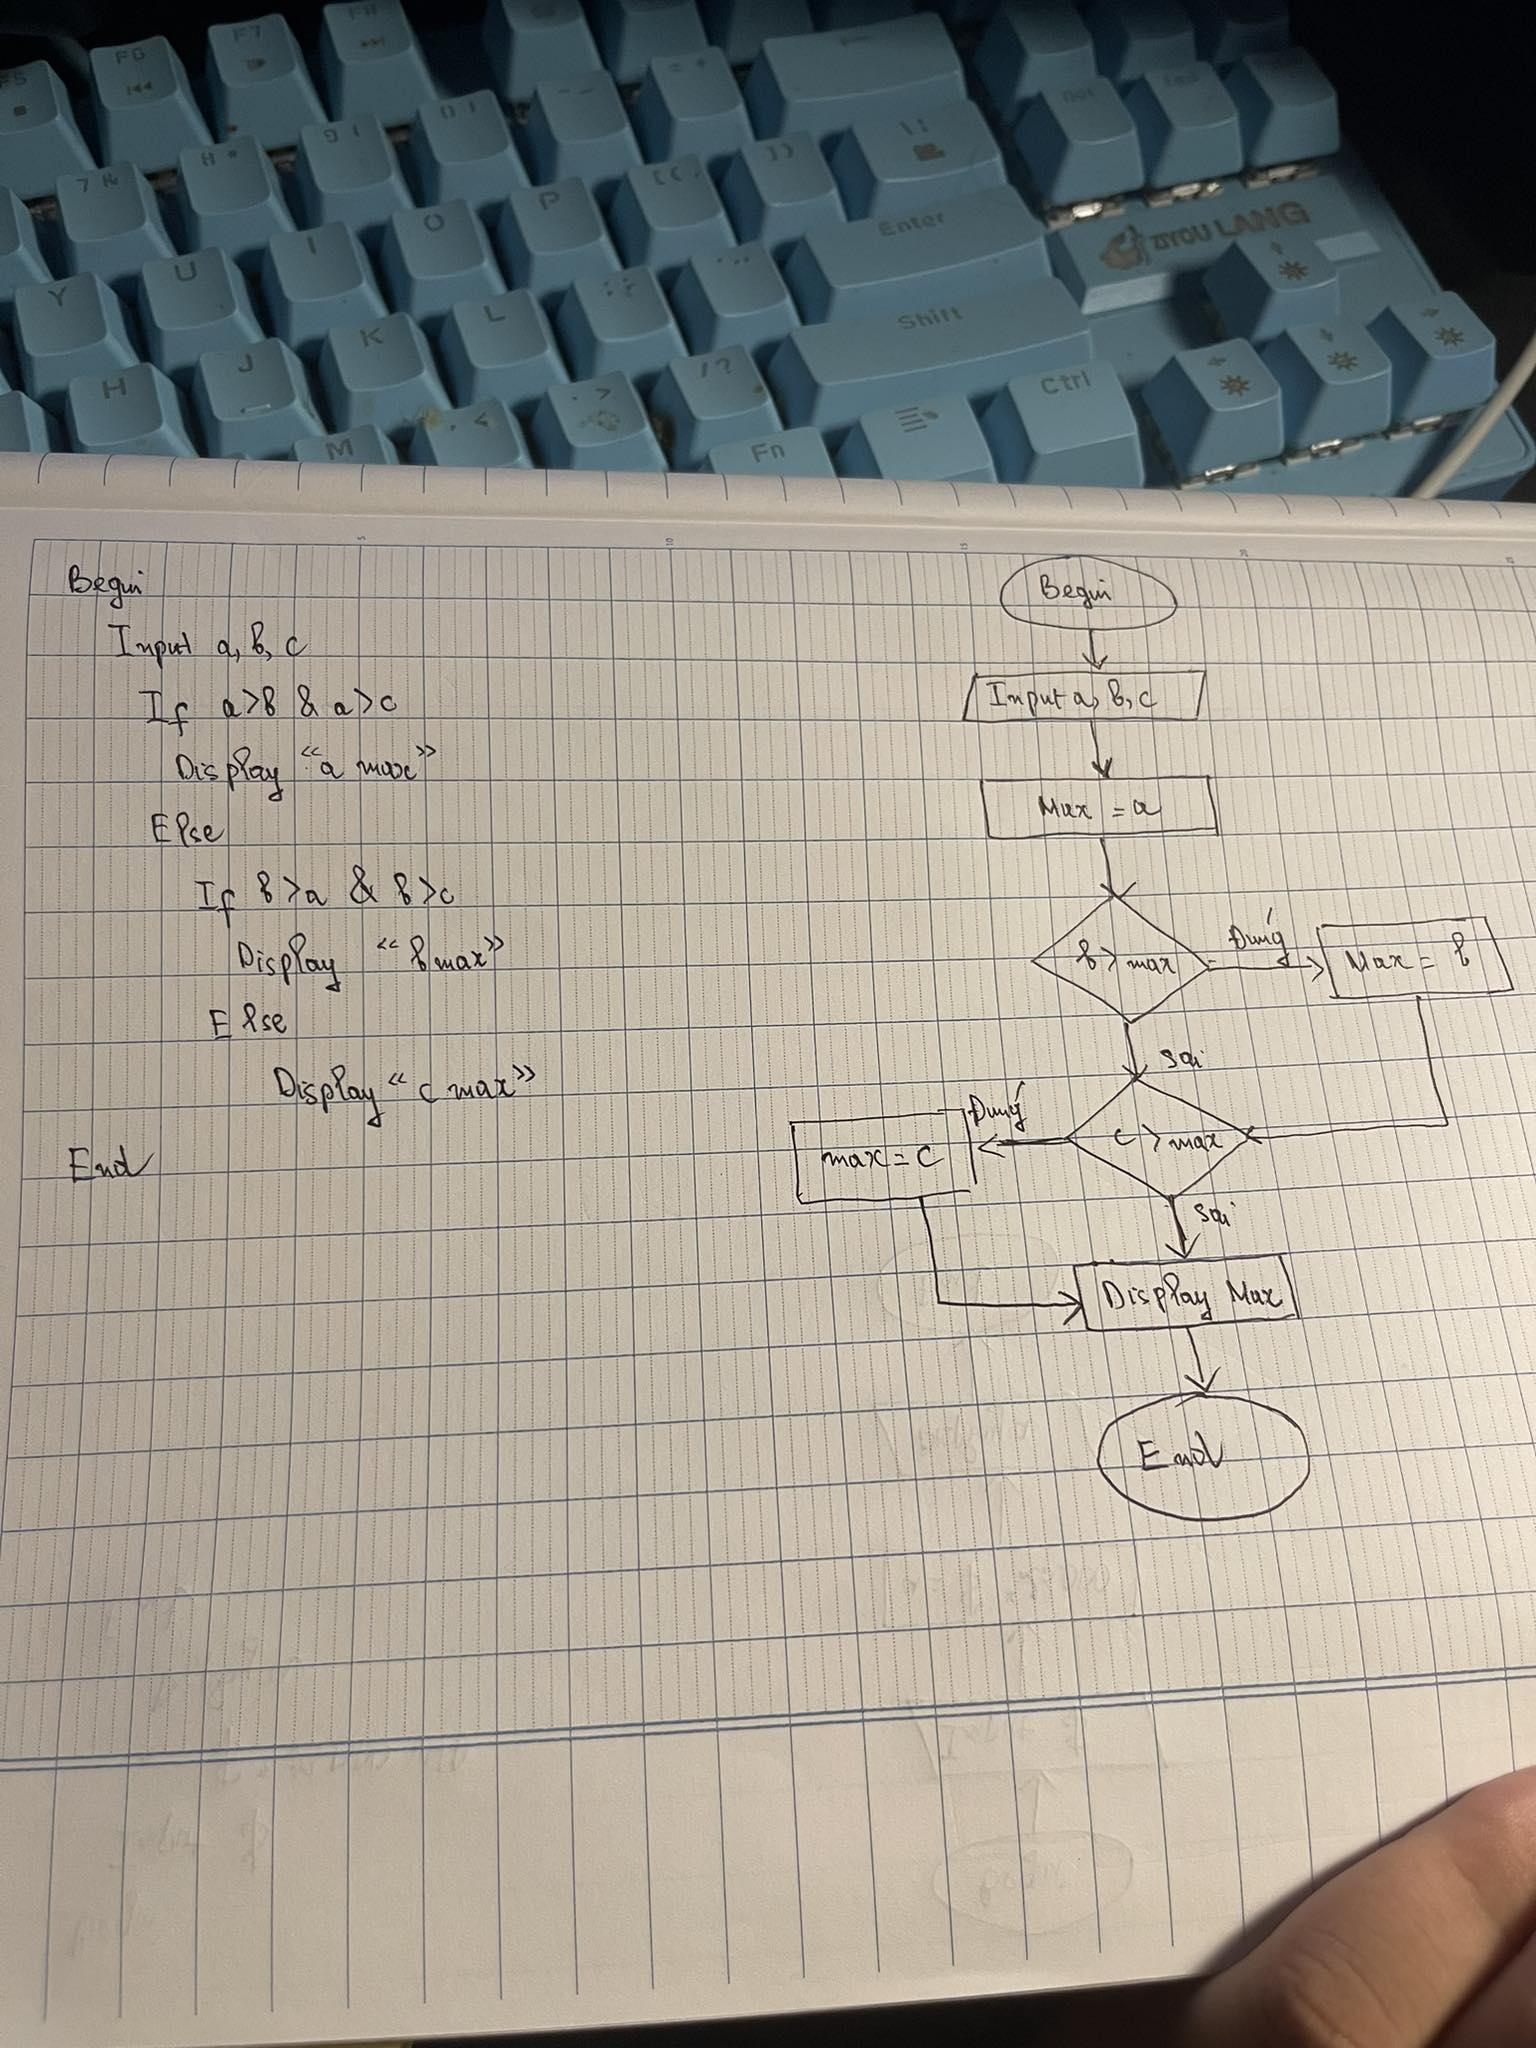 F5
F6
F7
F8
7 &
8 *
9 (
0 )
- _
= +
Y
U
I
O
P
[ {
] }
\ |
Enter
H
J
K
L
: ;
' "
Shift
M
, <
. >
/ ?
Fn
Ctrl
ZIYOU LANG
Begin
Input a, b, c
If a>b & a>c
Display "a max"
Else
If b>a & b>c
Display "b max"
Else
Display "c max"
End
Begin
Input a, b, c
Max = a
b > max
Đúng
Max = b
Sai
c > max
Đúng
max = c
Sai
Display Max
End